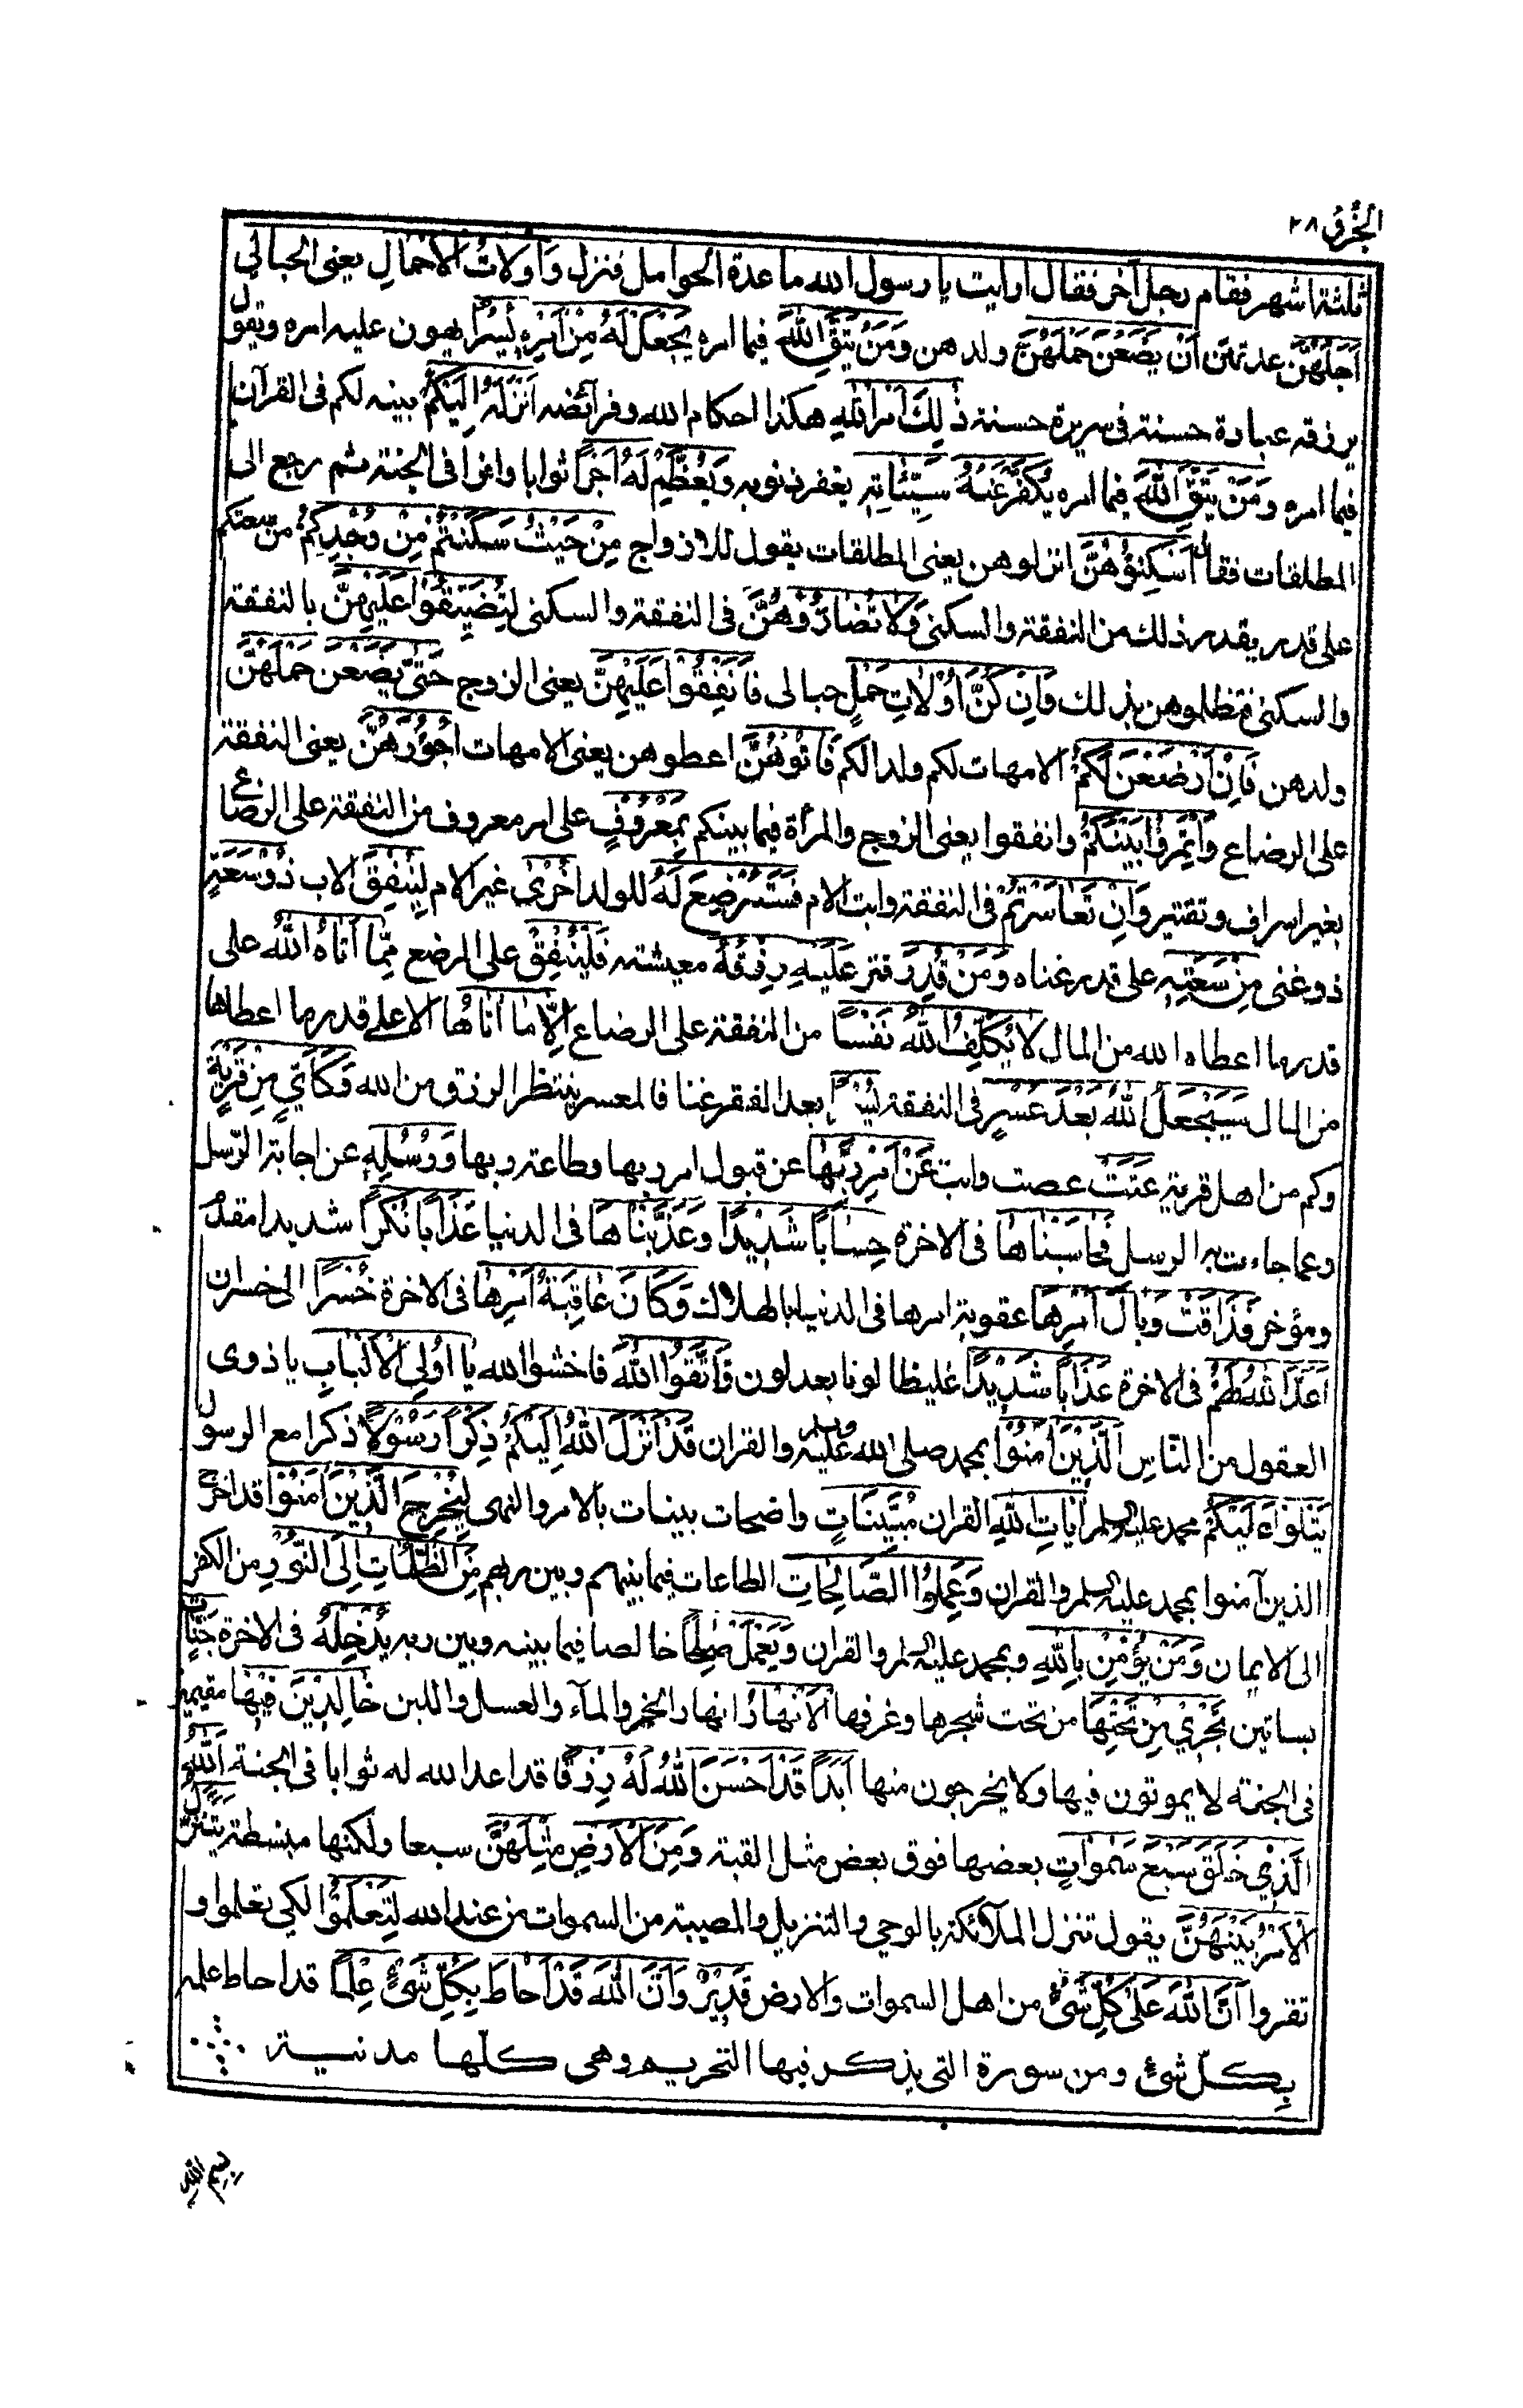 الجزؤ ٢٨
ثلثة اشهر فقام رجل آخر فقال ارايت يا رسول الله ما عدة الحوامل فنزل وَاُولَاتُ الْاَحْمَالِ يعنى الحبالى
اَجَلُهُنَّ عدتهن اَنْ يَضَعْنَ حَمْلَهُنَّ ولدهن وَمَنْ يَتَّقِ اللّٰهَ فيما امره يَجْعَلْ لَهُ مِنْ اَمْرِهٖ يُسْرًا يهون عليه امره ويقول
يرزقه عبادة حسنة فى سريرة حسنة ذٰلِكَ اَمْرُ اللّٰهِ هكذا احكام الله وفرآئضه اَنْزَلَهُ اِلَيْكُمْ بينه لكم فى القرآن
فيما امره وَمَنْ يَتَّقِ اللّٰهَ فيما امره يُكَفِّرْ عَنْهُ سَيِّئَاتِهٖ يغفر ذنوبه وَيُعْظِمْ لَهُ اَجْرًا ثوابا وافرا فى الجنة ثم رجع الى
المطلقات فقال اَسْكِنُوْهُنَّ انزلوهن يعنى المطلقات يقول للازواج مِنْ حَيْثُ سَكَنْتُمْ مِنْ وُجْدِكُمْ من سعتكم
على قدر يقدر ذلك من النفقة والسكنى وَلَا تُضَارُّوْهُنَّ فى النفقة والسكنى لِتُضَيِّقُوْا عَلَيْهِنَّ بالنفقة
والسكنى فتظلموهن بذلك وَاِنْ كُنَّ اُوْلَاتِ حَمْلٍ حبالى فَاَنْفِقُوْا عَلَيْهِنَّ يعنى الزوج حَتّٰى يَضَعْنَ حَمْلَهُنَّ
ولدهن فَاِنْ اَرْضَعْنَ لَكُمْ الامهات لكم ولدا لكم فَاٰتُوْهُنَّ اعطوهن يعنى الامهات اُجُوْرَهُنَّ يعنى النفقة
على الرضاع وَاْتَمِرُوْا بَيْنَكُمْ وانفقوا يعنى الزوج والمرأة فيما بينكم بِمَعْرُوْفٍ على امر معروف من النفقة على الرضاع
بغير اسراف وتقتير وَاِنْ تَعَاسَرْتُمْ فى النفقة وابت الام فَسَتُرْضِعُ لَهُ للولد اُخْرٰى غير الام لِيُنْفِقْ الاب ذُوْ سَعَةٍ
ذو غنى مِنْ سَعَتِهٖ على قدر غناه وَمَنْ قُدِرَ قتر عَلَيْهِ رِزْقُهُ معيشته فَلْيُنْفِقْ على المرضع مِمَّا اٰتَاهُ اللّٰهُ على
قدر ما اعطاه الله من المال لَا يُكَلِّفُ اللّٰهُ نَفْسًا من النفقة على الرضاع اِلَّا مَا اٰتَاهَا الا على قدر ما اعطاها
من المال سَيَجْعَلُ اللّٰهُ بَعْدَ عُسْرٍ فى النفقة يُسْرًا بعد الفقر غنا فالمعسر ينتظر الرزق من الله وَكَاَيِّنْ مِنْ قَرْيَةٍ
وكم من اهل قرية عَتَتْ عصت وابت عَنْ اَمْرِ رَبِّهَا عن قبول امر ربها وطاعة ربها وَرُسُلِهٖ عن اجابة الرسل
وعما جاءت به الرسل فَحَاسَبْنَاهَا فى الاخرة حِسَابًا شَدِيْدًا وَعَذَّبْنَاهَا فى الدنيا عَذَابًا نُكْرًا شديدا مقدم
ومؤخر فَذَاقَتْ وَبَالَ اَمْرِهَا عقوبة امرها فى الدنيا بالهلاك وَكَانَ عَاقِبَةُ اَمْرِهَا فى الاخرة خُسْرًا الى خسران
اَعَدَّ اللّٰهُ لَهُمْ فى الاخرة عَذَابًا شَدِيْدًا غليظا لونا بعد لون فَاتَّقُوا اللّٰهَ فاخشوا الله يَا اُولِى الْاَلْبَابِ يا ذوى
العقول من النّاسِ الَّذِيْنَ اٰمَنُوْا بمحمد صلى الله عليه وسلم والقران قَدْ اَنْزَلَ اللّٰهُ اِلَيْكُمْ ذِكْرًا رَسُوْلًا ذكرا مع الرسول
يَتْلُوْا عَلَيْكُمْ محمد عليه السلم اٰيَاتِ اللّٰهِ القران مُبَيِّنَاتٍ واضحات بينات بالامر والنهى لِيُخْرِجَ الَّذِيْنَ اٰمَنُوْا قد اخرج
الذين آمنوا بمحمد عليه السلم والقران وَعَمِلُوا الصَّالِحَاتِ الطاعات فيما بينهم وبين ربهم مِنَ الظُّلُمَاتِ اِلَى النُّوْرِ من الكفر
الى الايمان وَمَنْ يُؤْمِنْ بِاللّٰهِ وبمحمد عليه السلم والقران وَيَعْمَلْ صٰلِحًا خالصا فيما بينه وبين ربه يُدْخِلْهُ فى الاخرة جَنّٰتٍ
بساتين تَجْرِيْ مِنْ تَحْتِهَا من تحت شجرها وغرفها الْاَنْهَارُ انهار الخمر والمآء والعسل واللبن خَالِدِيْنَ فِيْهَا مقيمين
فى الجنة لا يموتون فيها ولا يخرجون منها اَبَدًا قَدْ اَحْسَنَ اللّٰهُ لَهُ رِزْقًا قد اعد الله له ثوابا فى الجنة اَللّٰهُ
الَّذِيْ خَلَقَ سَبْعَ سَمٰوَاتٍ بعضها فوق بعض مثل القبة وَمِنَ الْاَرْضِ مِثْلَهُنَّ سبعا ولكنها منبسطة يَتَنَزَّلُ
الْاَمْرُ بَيْنَهُنَّ يقول تنزل الملآئكة بالوحي والتنزيل والمصيبة من السموات من عند الله لِتَعْلَمُوْا لكي تعلموا و
تقروا اَنَّ اللّٰهَ عَلٰى كُلِّ شَيْءٍ من اهل السموات والارض قَدِيْرٌ وَاَنَّ اللّٰهَ قَدْ اَحَاطَ بِكُلِّ شَيْءٍ عِلْمًا قد احاط علمه
بكل شئ ومن سورة التى يذكر فيها التحريم وهى كلها مدنية
بسم الله